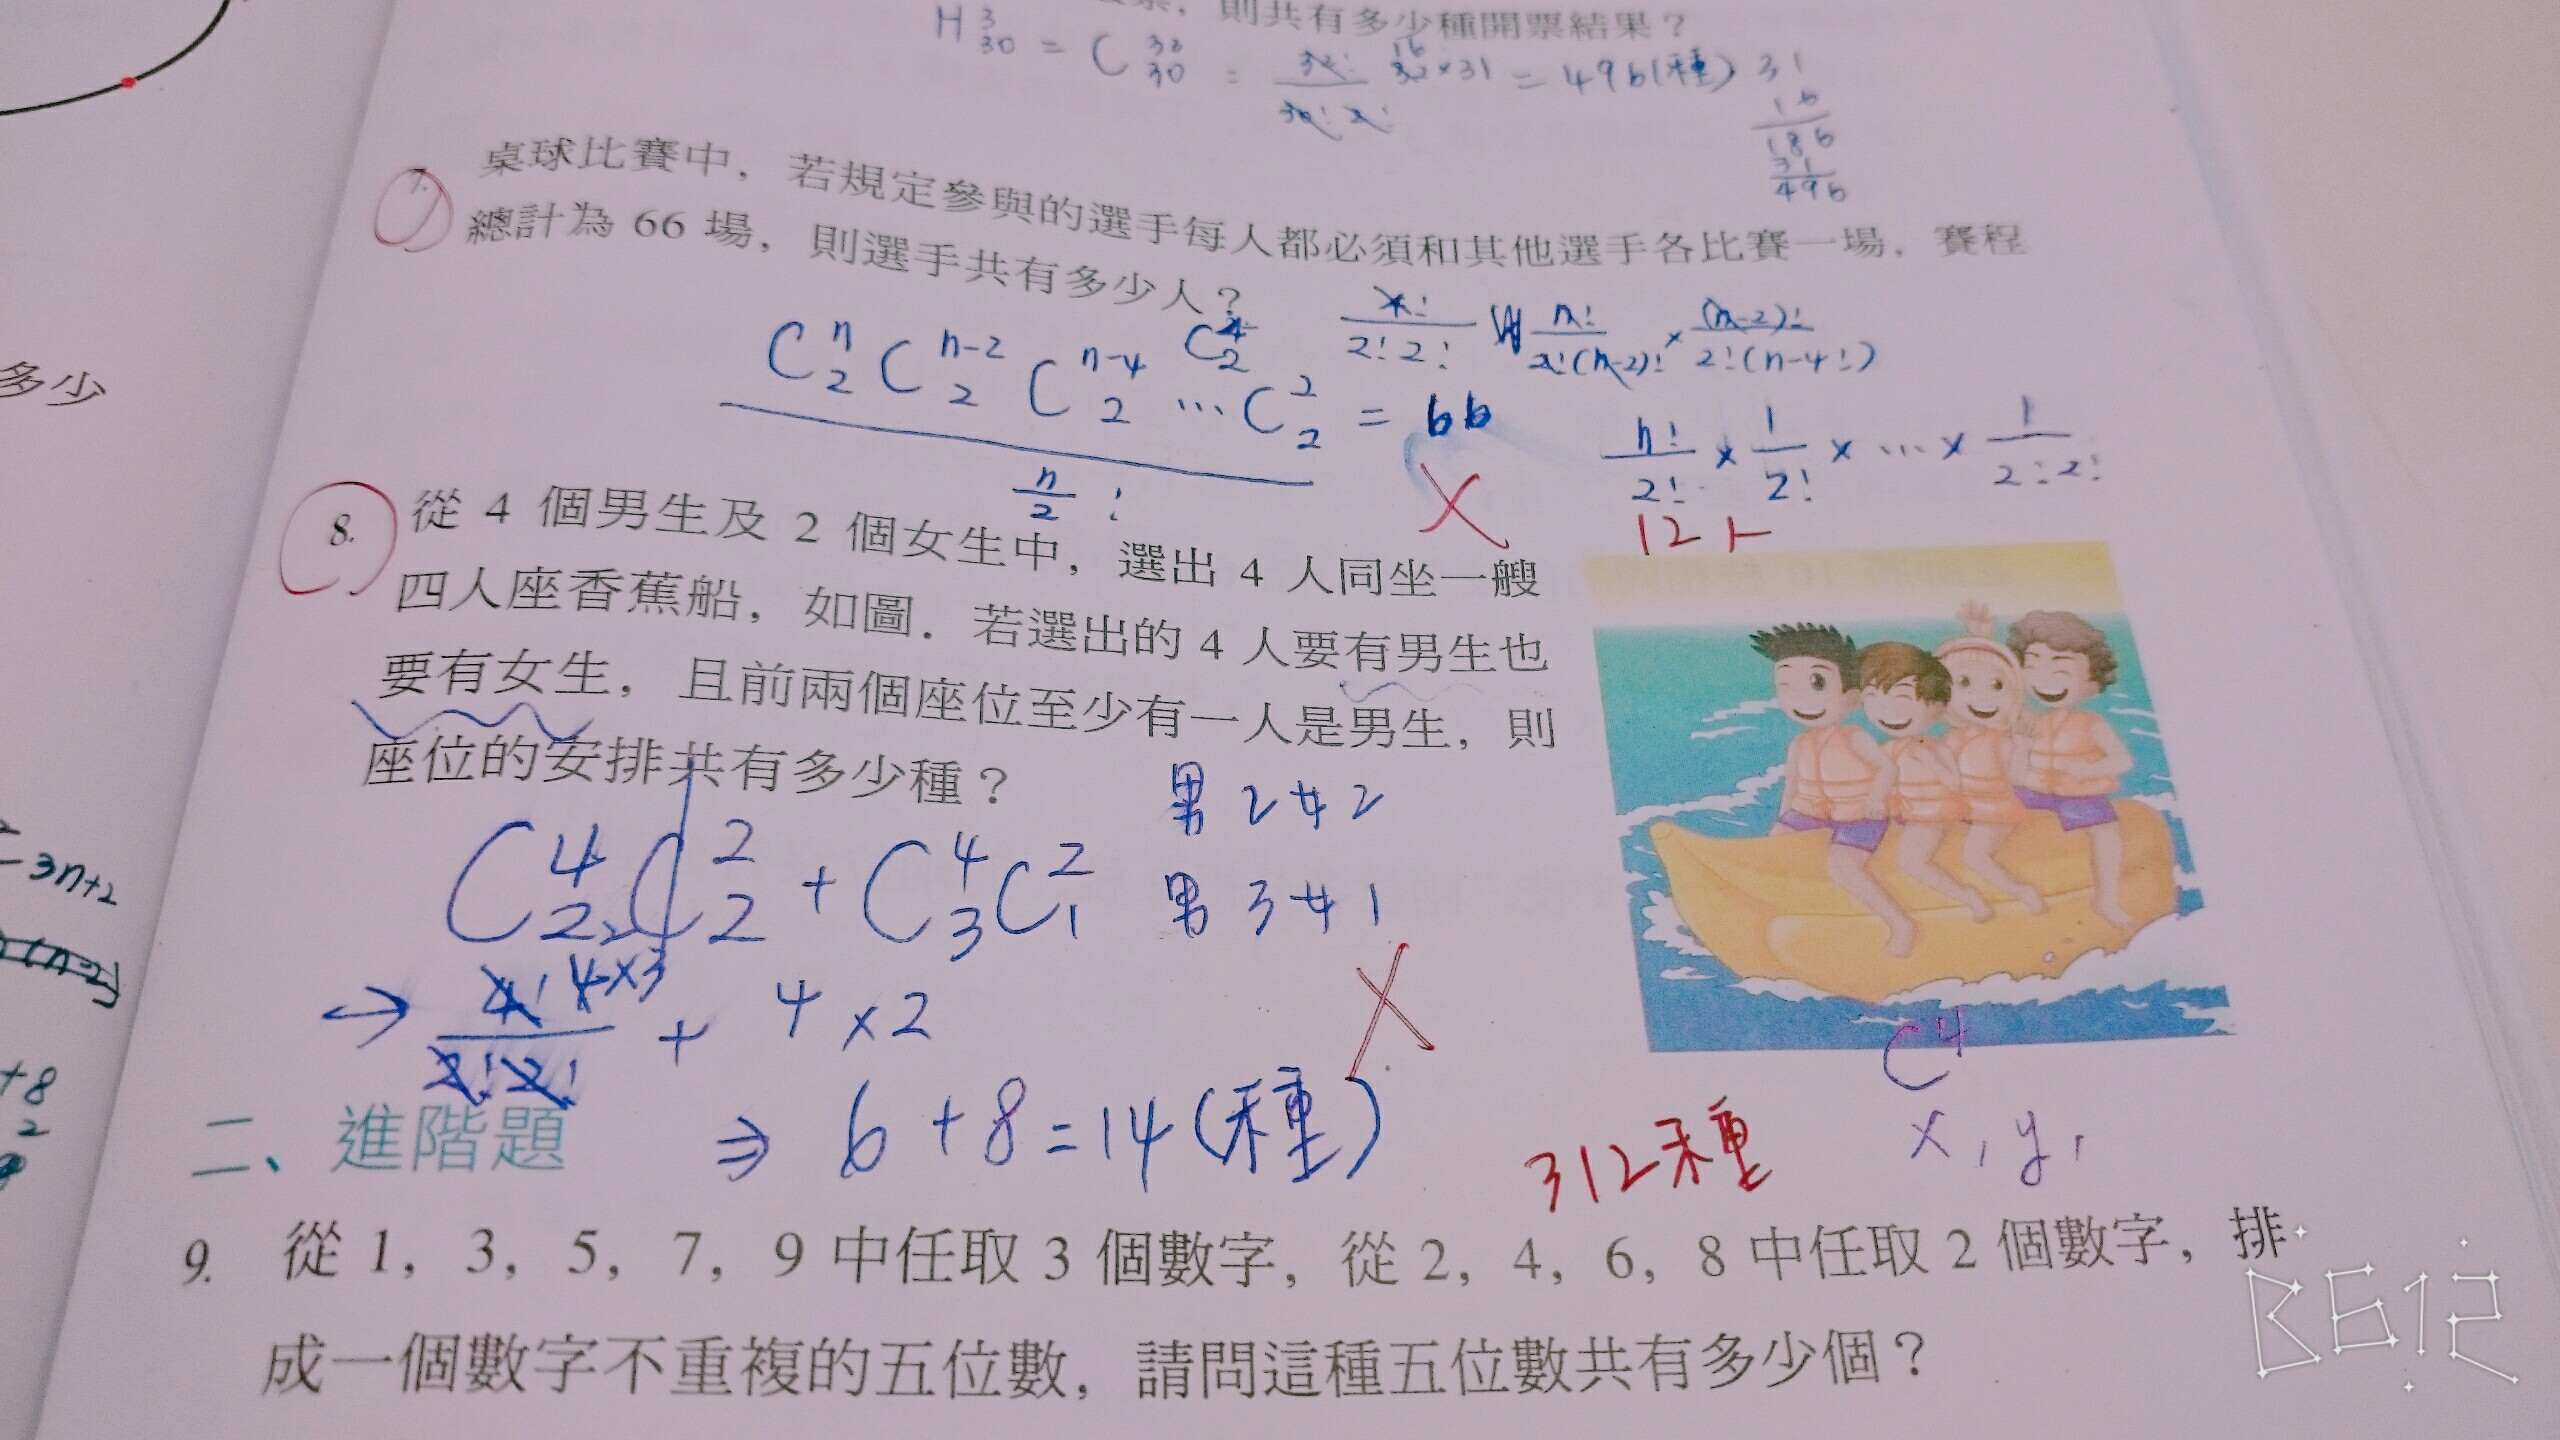 則共有多少種開票結果?
H 3 30 = C 32 30 = 32! 32×31 = 496(種) 31
30! 2! 16
16
186
31
496
7. 桌球比賽中,若規定參與的選手每人都必須和其他選手各比賽一場,賽程
總計為 66 場,則選手共有多少人?
C n 2 C n-2 2 C n-4 2 … C 4 2 C 2 2 = 66
n/2 !
2! 2!
n! / 2!(n-2)! × (n-2)! / 2!(n-4!)
n!/2! × 1/2! × … × 1/2!2!
X
12人
8. 從 4 個男生及 2 個女生中,選出 4 人同坐一艘
四人座香蕉船,如圖.若選出的 4 人要有男生也
要有女生,且前兩個座位至少有一人是男生,則
座位的安排共有多少種?
男 2 女 2
C 4 2 C 2 2 + C 4 3 C 2 1
男 3 女 1
→ 4! 4×3 / 2! 2! + 4×2
X
⇒ 6+8=14(種)
312種
C 4
x, y,
二、進階題
9. 從 1, 3, 5, 7, 9 中任取 3 個數字,從 2, 4, 6, 8 中任取 2 個數字,排
成一個數字不重複的五位數,請問這種五位數共有多少個?
多少
3n+2
(n-2)
+8
2
B612